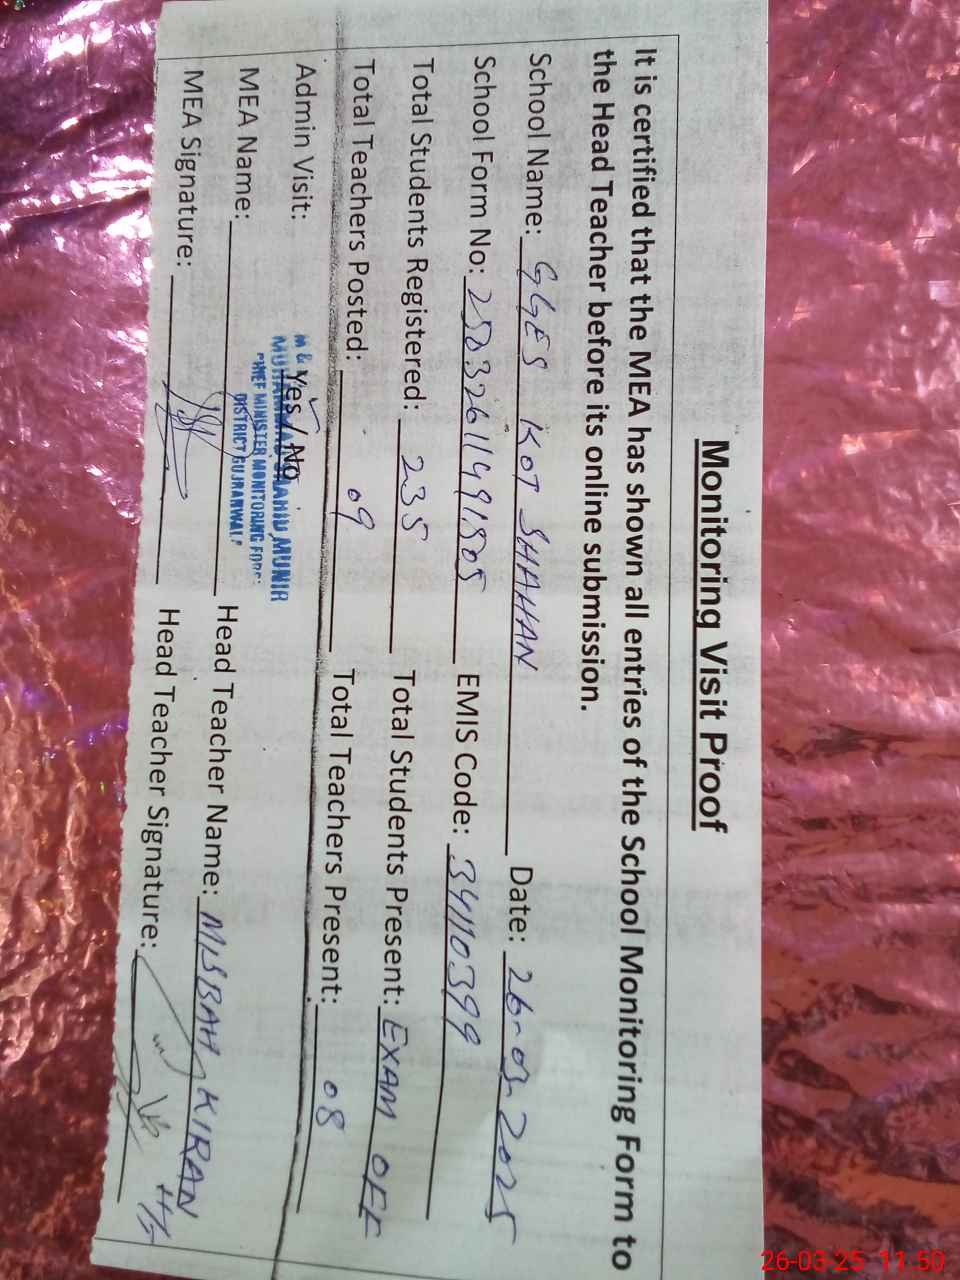 Monitoring Visit Proof
It is certified that the MEA has shown all entries of the School Monitoring Form to
the Head Teacher before its online submission.
School Name: GGES KOT SHAHAN Date: 26-03-2025
School Form No: EMIS Code: 34110399
Total Students Registered: 235 Total Students Present: EXAM OFF
Total Teachers Posted: 09 Total Teachers Present: 08
Admin Visit: Yes / No
M &
MUHAMMAD MUNIR
CHIEF MINISTER MONITORING FORCE
DISTRICT GUJRANWALA
MEA Name: Head Teacher Name: MISBAH KIRAN
MEA Signature: Head Teacher Signature:
26-03-25 11:50